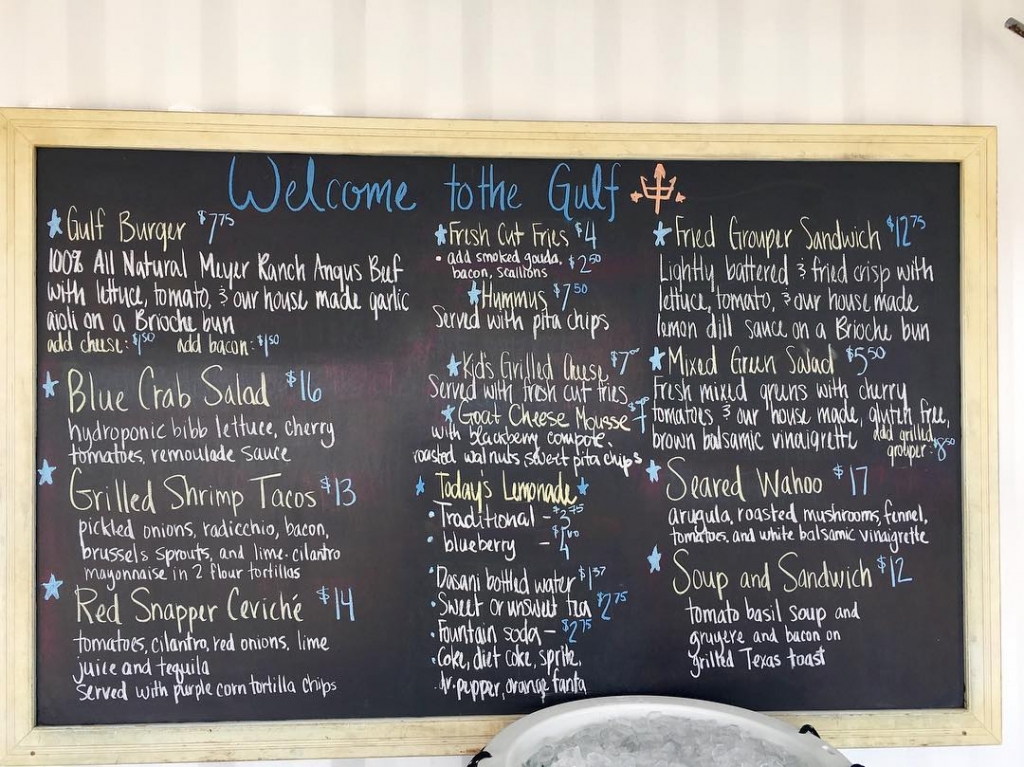 Welcome to the Gulf
Gulf Burger $7.75
100% All Natural Meyer Ranch Angus Beef
with lettuce, tomato, & our house made garlic
aioli on a Brioche bun
add cheese: $1.50 add bacon: $1.50
Blue Crab Salad $16
hydroponic bibb lettuce, cherry
tomatoes, remoulade sauce
Grilled Shrimp Tacos $13
pickled onions, radicchio, bacon,
brussels sprouts, and lime-cilantro
mayonnaise in 2 flour tortillas
Red Snapper Ceviché $14
tomatoes, cilantro, red onions, lime
juice and tequila
Served with purple corn tortilla chips
Fresh Cut Fries $4
• add smoked gouda,
bacon, scallions $2.50
Hummus $7.50
Served with pita chips
Kid's Grilled Cheese $7
Served with fresh cut fries
Goat Cheese Mousse $7
with blackberry compote,
roasted walnuts, sweet pita chips
Today's Lemonade
• Traditional -
• blueberry -
• Dasani bottled water $1.37
• Sweet or unsweet tea $2.75
• Fountain soda - $2.75
• Coke, diet coke, sprite,
• dr. pepper, orange fanta
Fried Grouper Sandwich $12.75
Lightly battered & fried crisp with
lettuce, tomato, & our house made
lemon dill sauce on a Brioche bun
Mixed Green Salad $5.50
Fresh mixed greens with cherry
tomatoes & our house made, gluten free,
brown balsamic vinaigrette add grilled
grouper: $8.50
Seared Wahoo $17
arugula, roasted mushrooms, fennel,
tomatoes, and white balsamic vinaigrette
Soup and Sandwich $12
tomato basil soup and
gruyere and bacon on
grilled Texas toast